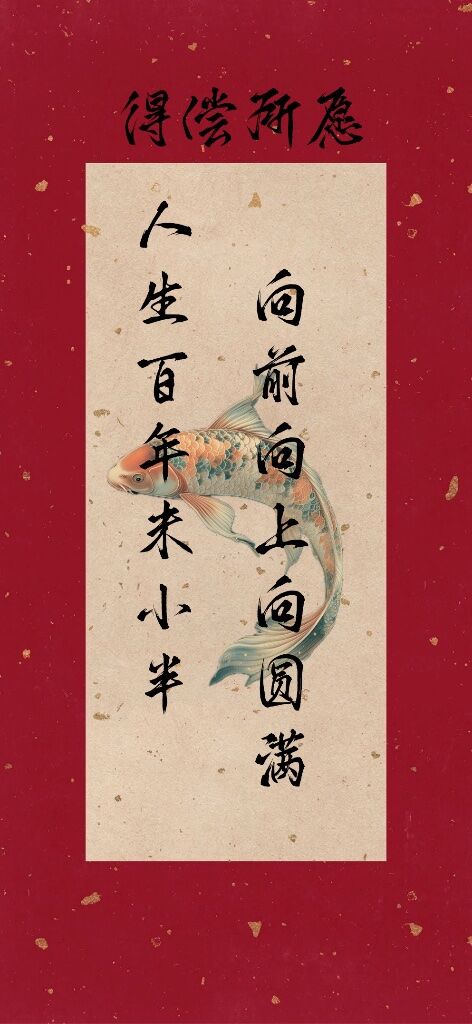 得偿所愿
人生百年未小半
向前向上向圆满